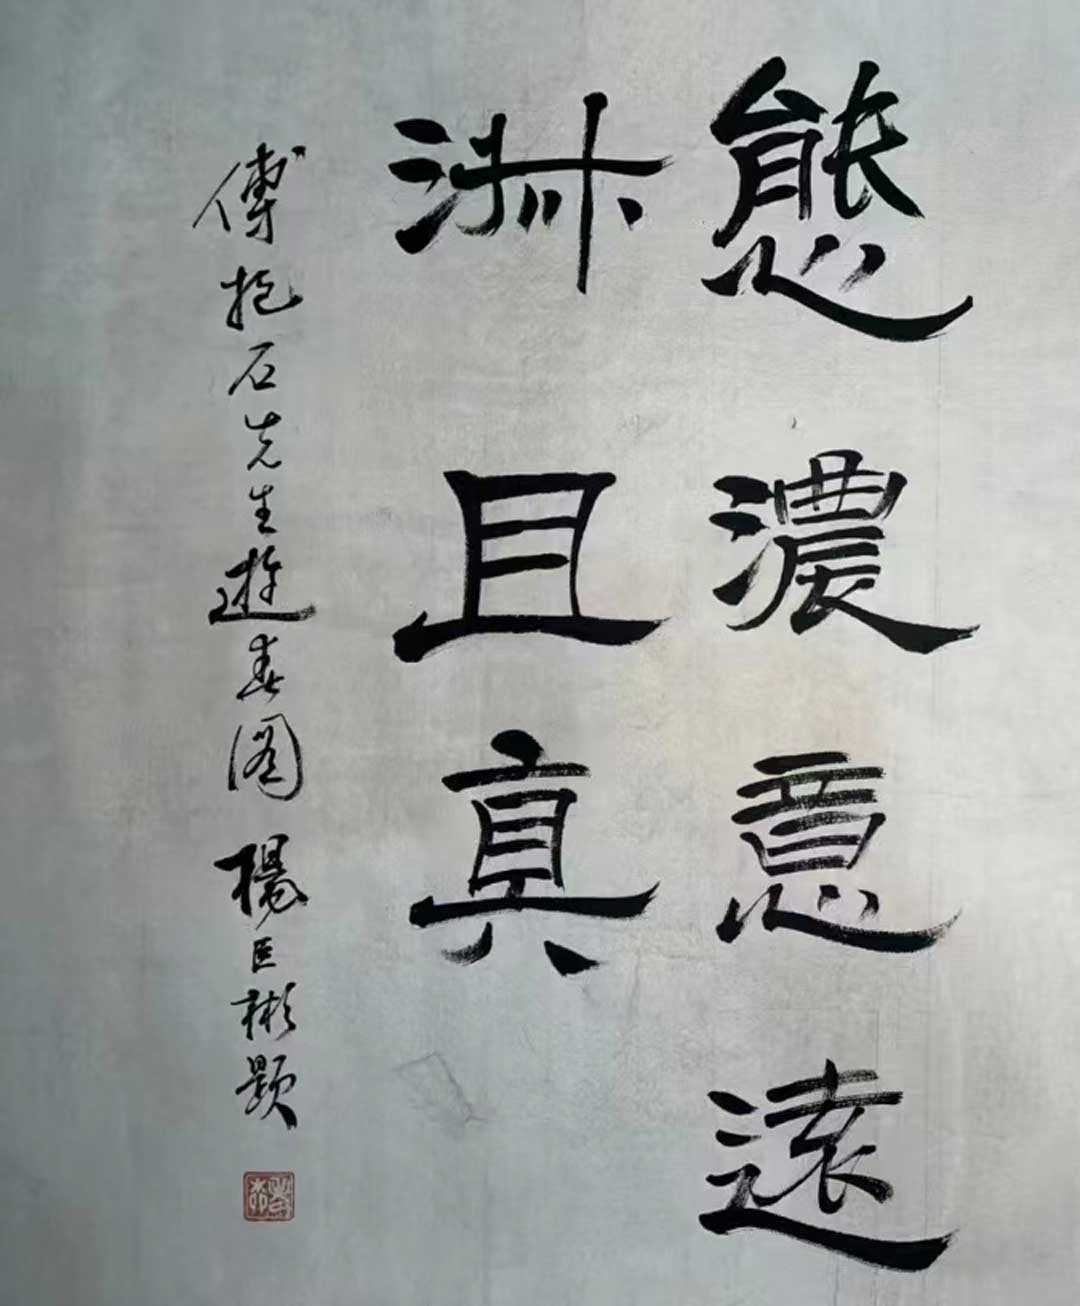 態濃意遠
淑且真
傅抱石先生遊春圖 楊臣彬題